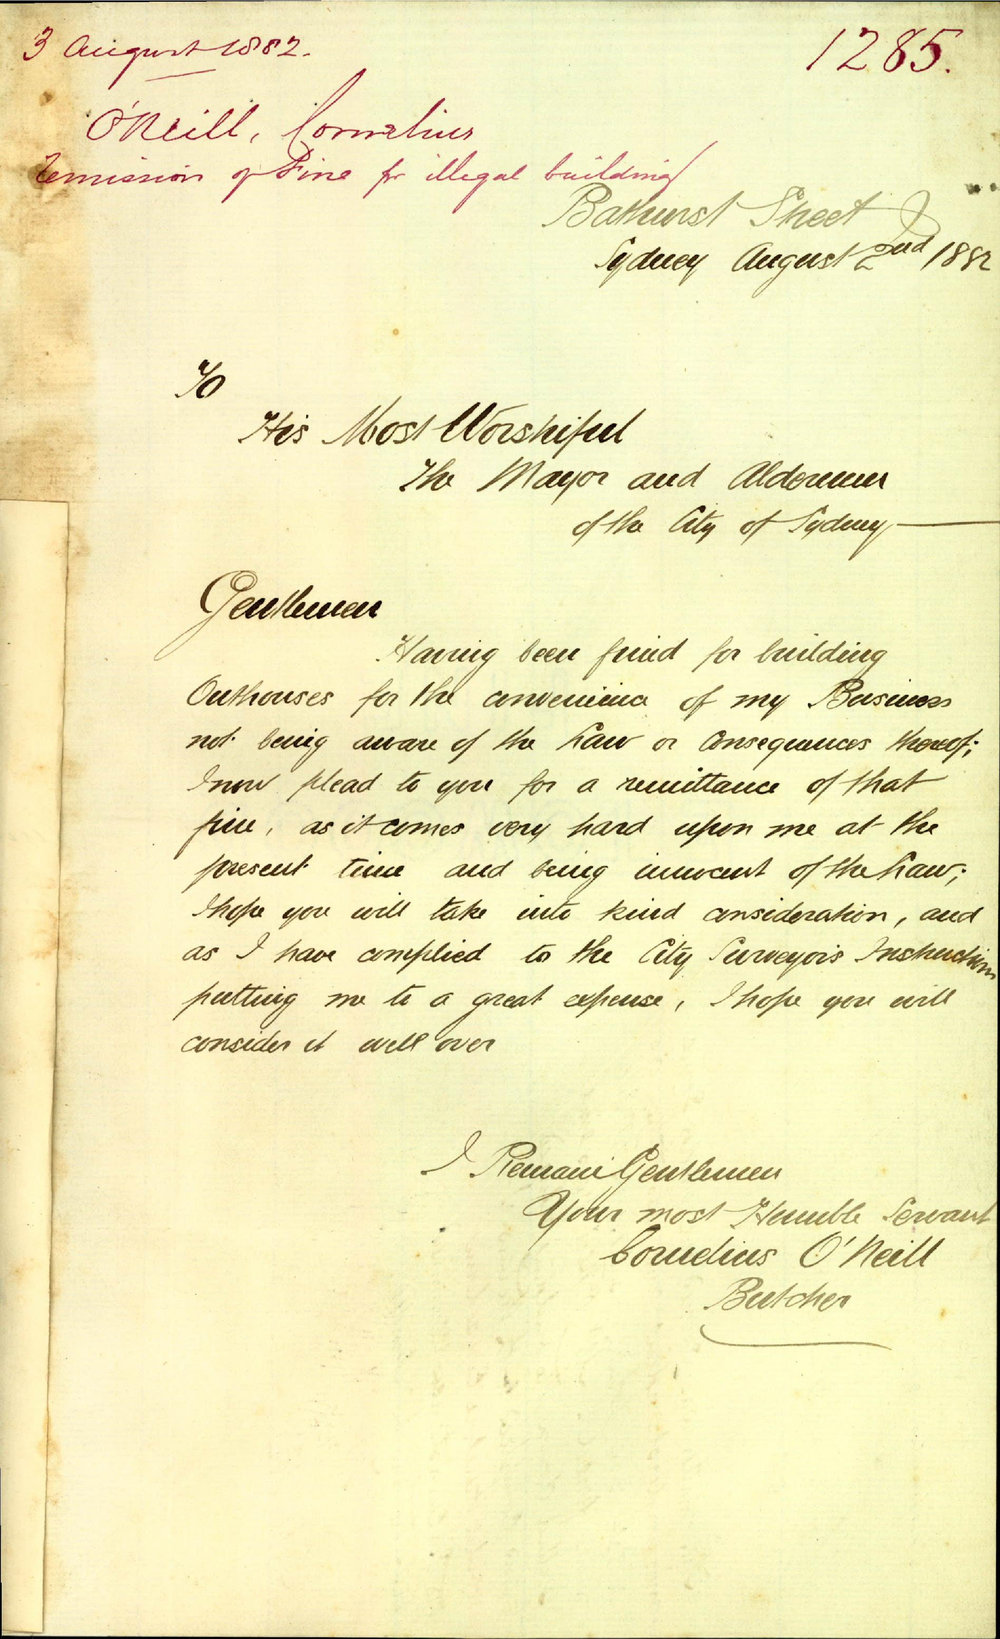 3 August 1882.
1285.
O'Neill, Cornelius
Remission of Fine for illegal building
Bathurst Street
Sydney August 2nd 1882
To
His Most Worshipful
The Mayor and Aldermen
of the City of Sydney
Gentlemen
Having been fined for building
Outhouses for the convenience of my Business
not being aware of the Law or Consequences thereof;
I now plead to you for a remittance of that
fine, as it comes very hard upon me at the
present time and being innocent of the Law;
I hope you will take into kind consideration, and
as I have complied to the City Surveyors Instructions
putting me to a great expense, I hope you will
consider it well over
I Remain Gentlemen
Your most Humble Servant
Cornelius O'Neill
Butcher